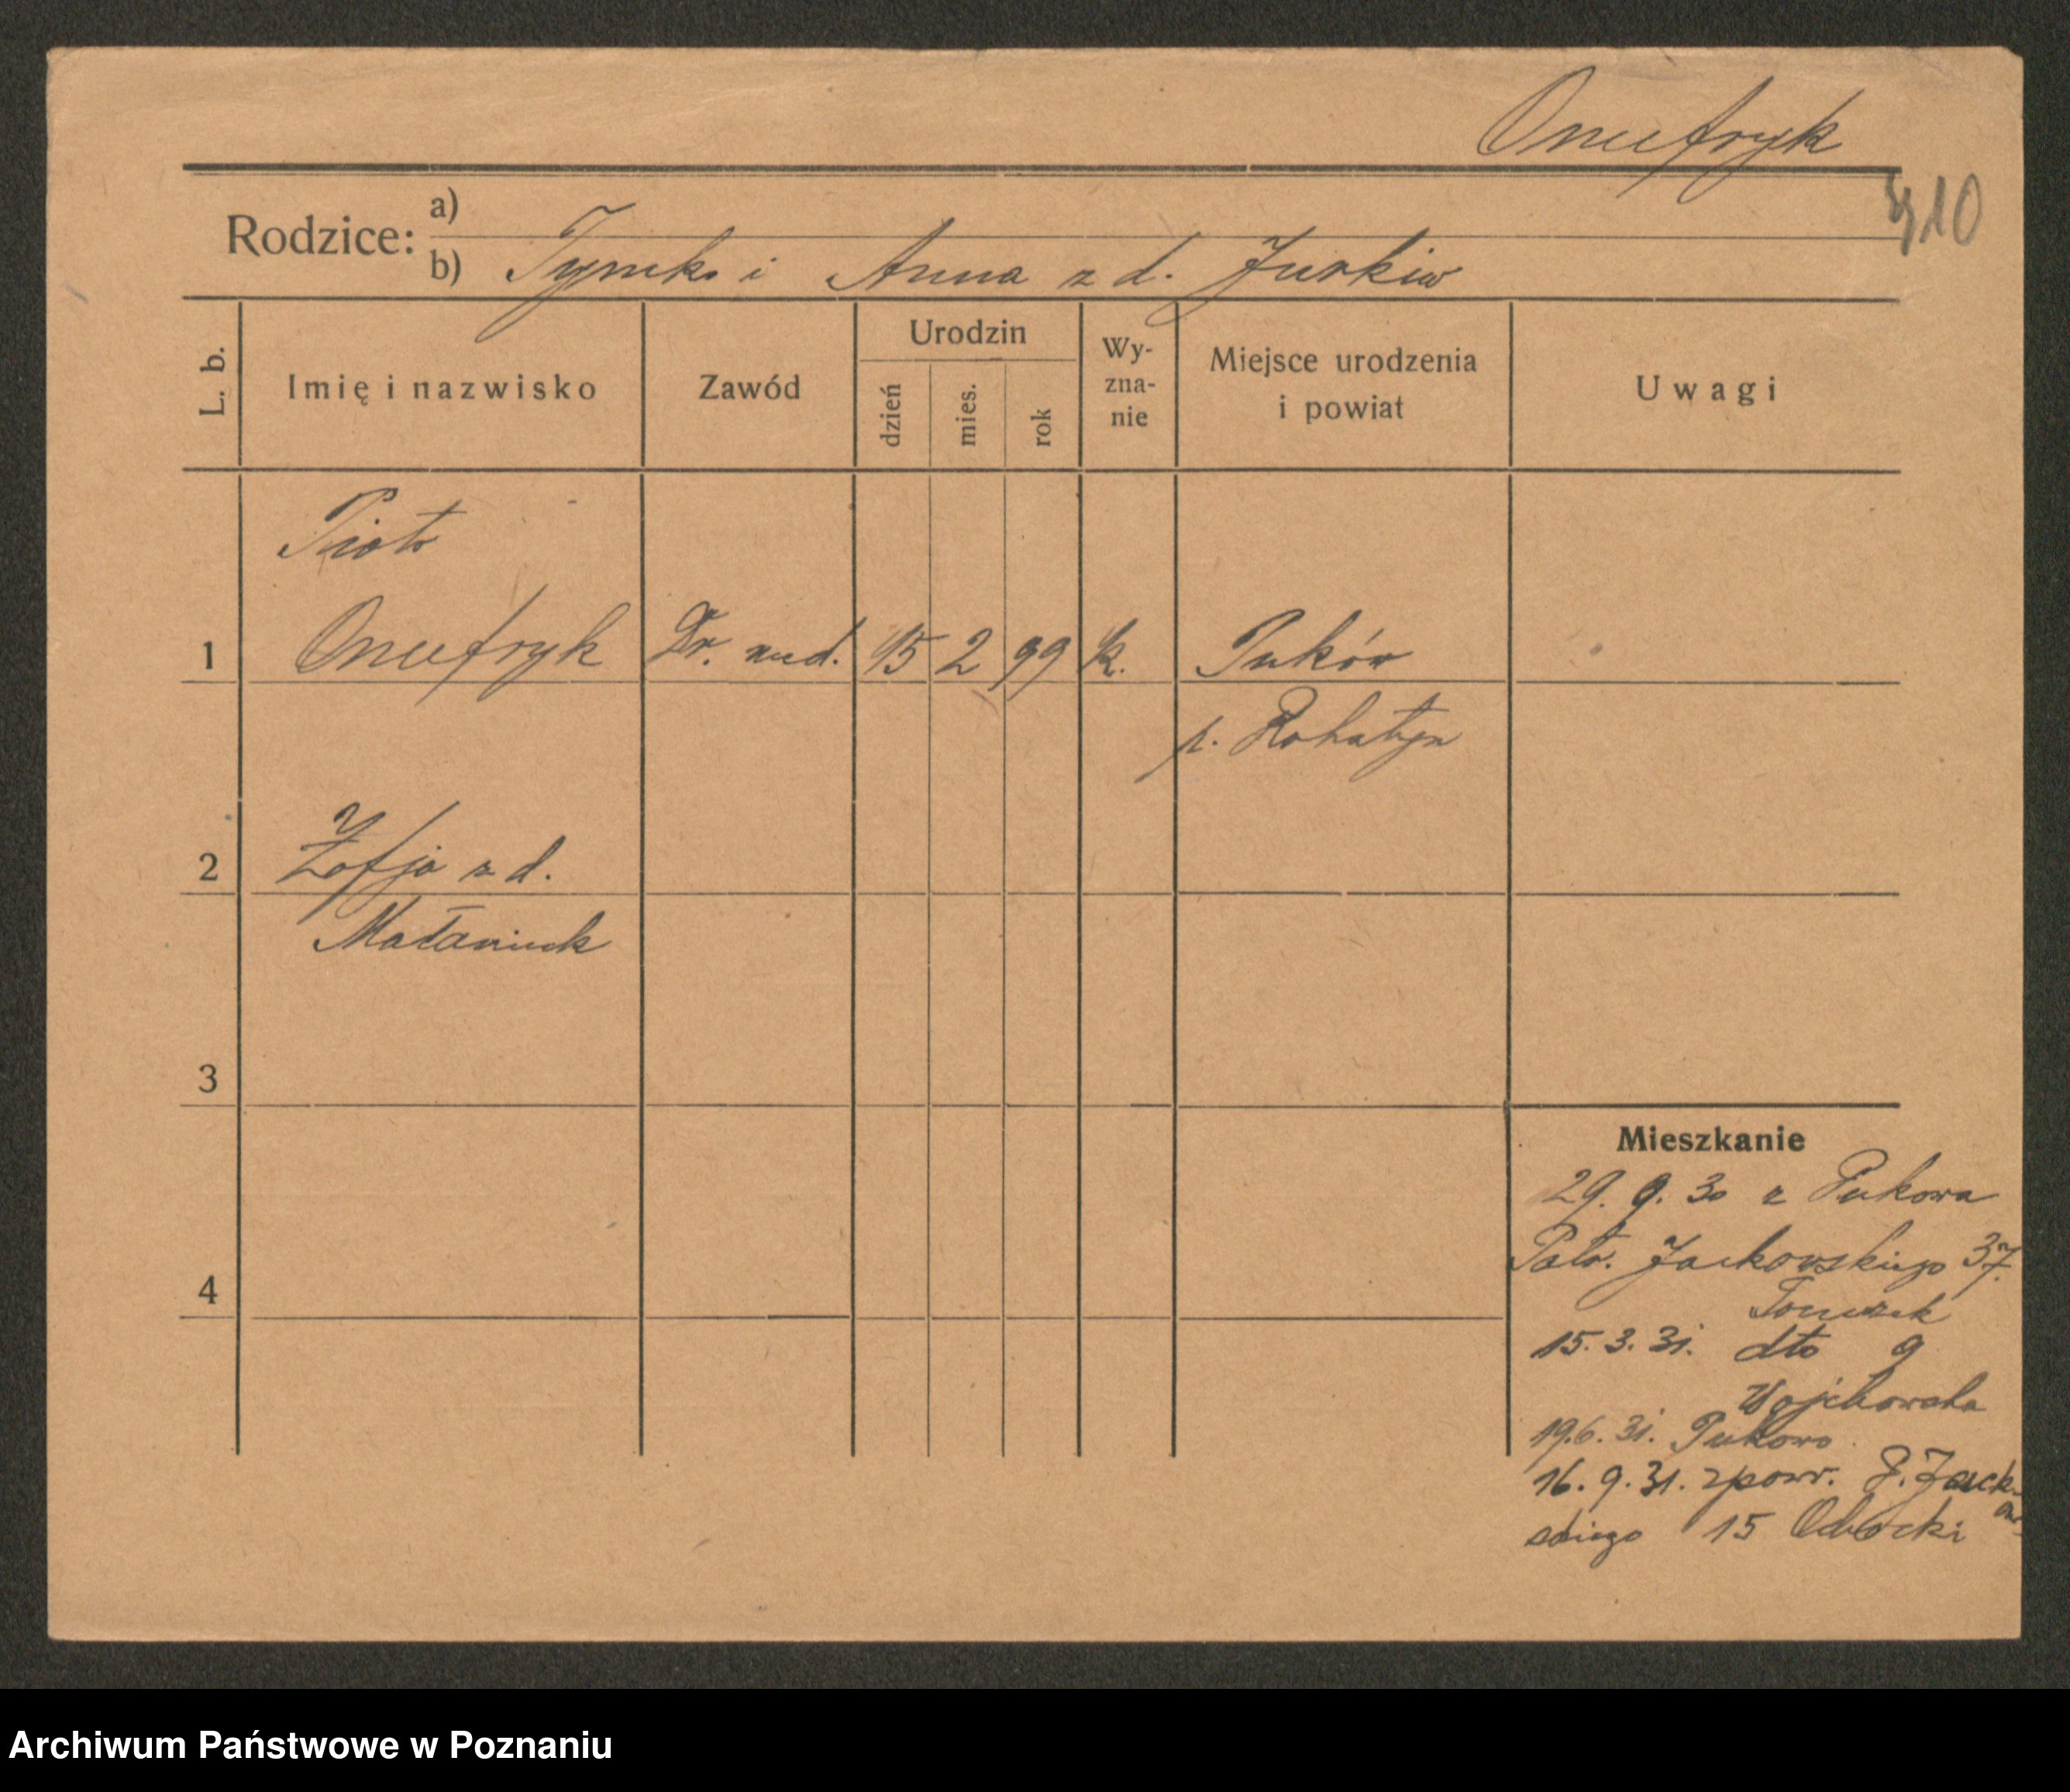 Onufryk
410
Rodzice:
a)
b) Tymko i Anna z d. Jurkiw
L. b.
Imię i nazwisko
Zawód
Urodzin
dzień
mies.
rok
Wy-
zna-
nie
Miejsce urodzenia
i powiat
Uwagi
Piotr
1 Onufryk Dr. med. 15 2 99 k. Puków
p. Rohatyn
2 Zofja z d.
Małaniuk
3
4
Mieszkanie
29. 9. 30 z Pukowa
Patr. Jackowskiego 37.
15. 3. 31. dto 9
Wojchowska
19.6. 31. Pukowo
16. 9. 31. zpowr. P. Jack-
ow-
skiego 15 Obocki
Archiwum Państwowe w Poznaniu